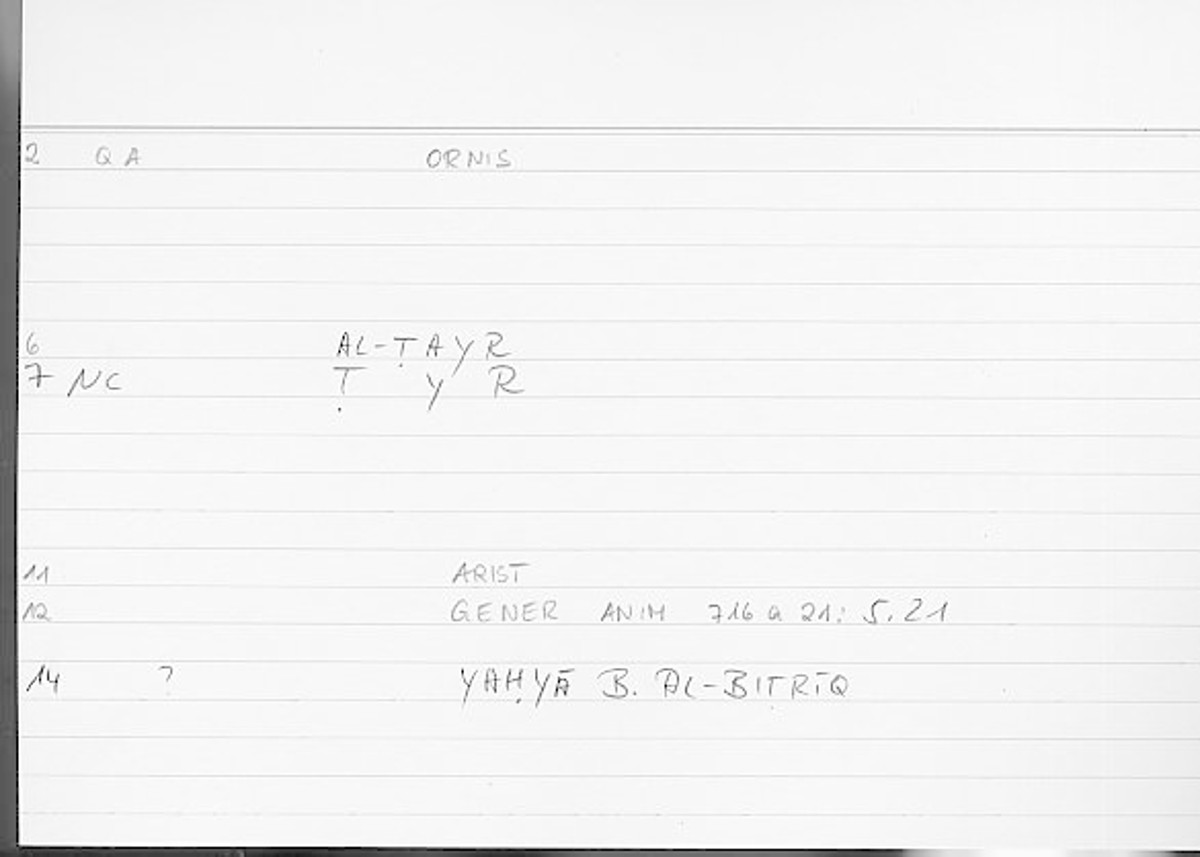 2 QA ORNIS
6 AL-ṬAYR
7 NC Ṭ Y R
11 ARIST
12 GENER ANIM 716 a 21: 5.21
14 ? YAḤYĀ B. AL-BIṬRĪQ